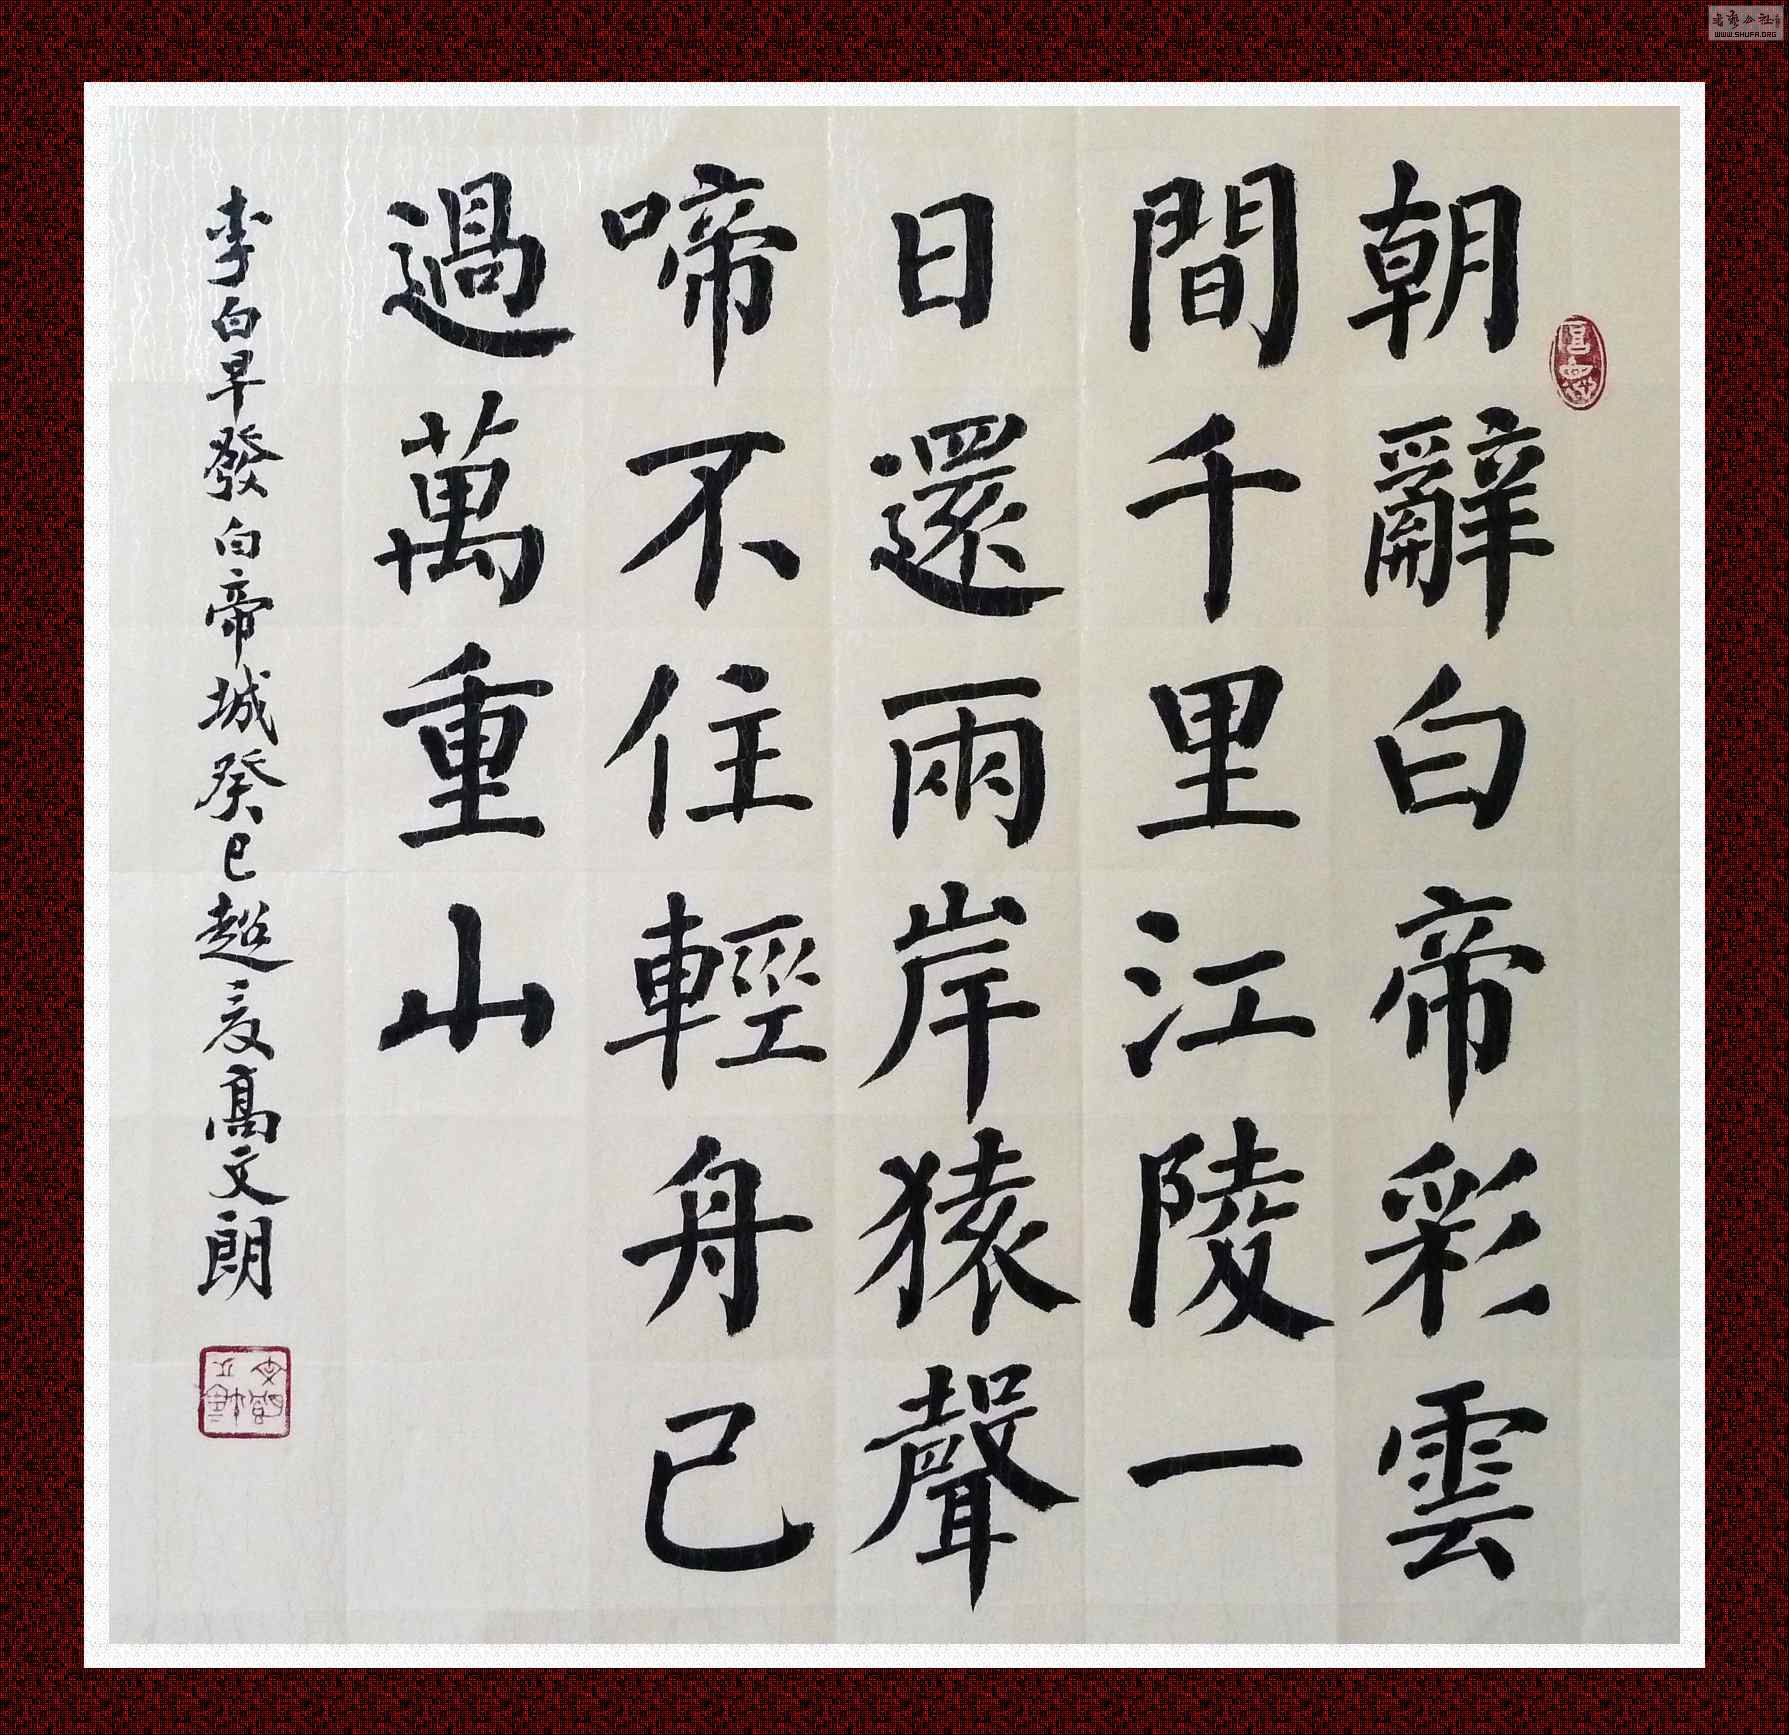 朝辭白帝彩雲
間千里江陵一
日還兩岸猿聲
啼不住輕舟已
過萬重山
李白早發白帝城癸巳超夌高文朗
WWW.SHUFA.ORG